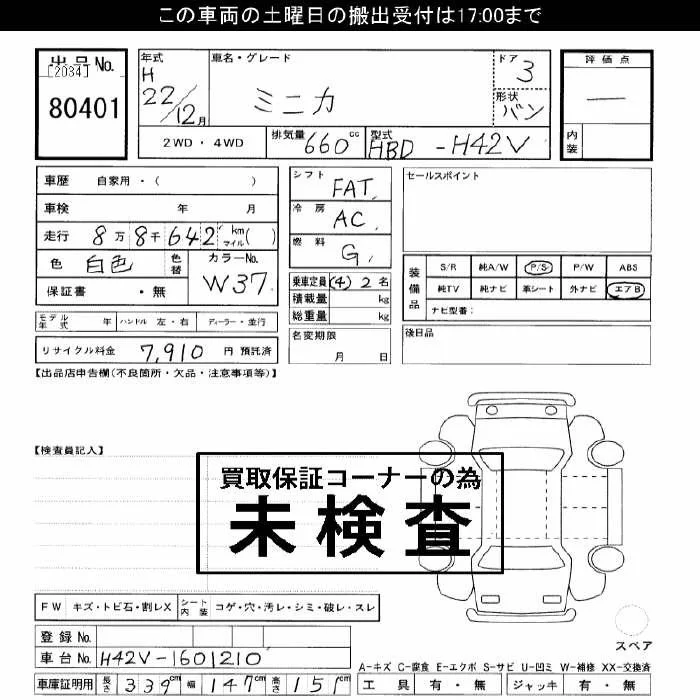 この車両の土曜日の搬出受付は17:00まで
出品No. [2034] 80401
年式 H 22/12月
車名・グレード ミニカ
ドア 3
形状 バン
評価点 —
内装
2WD・4WD 排気量 660cc 型式 HBD-H42V
車歴 自家用・( )
車検 年 月
走行 8万8千642 km マイル( )
色 白色 色替 カラーNo. W37
保証書 ・無
モデル年式 年 ハンドル 左・右 ディーラー・並行
リサイクル料金 7,910 円 預託済
シフト FAT
冷房 AC
燃料 G
乗車定員 (4) 2 名
積載量 kg
総重量 kg
名変期限 月 日
セールスポイント
装備品 S/R 純A/W P/S P/W ABS
純TV 純ナビ 革シート 外ナビ エアB
ナビ型番:
後日品
【出品店申告欄(不良箇所・欠品・注意事項等)】
【検査員記入】
買取保証コーナーの為
未検査
FW キズ・トビ石・割レX シート内装 コゲ・穴・汚レ・シミ・破レ・スレ
登録No.
車台No. H42V-1601210
車庫証明用 長さ 339cm 幅 147cm 高さ 151cm
スペア
A-キズ C-腐食 E-エクボ S-サビ U-凹ミ W-補修 XX-交換済
工具 有・無 ジャッキ 有・無